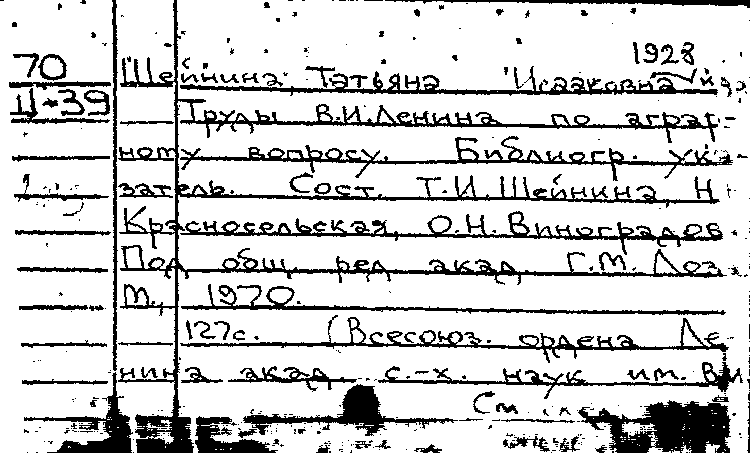 1928
70 Шейнина, Татьяна Исааковна
Ц-39 Труды В.И.Ленина по аграр-
ному вопросу. Библиогр. ука-
затель. Сост. Т.И.Шейнина, Н
Красносельская, О.Н.Виноградов
Под общ. ред. акад. Г.М. Лоз
М., 1970.
127с. (Всесоюз. ордена Ле
нина акад. с.-х. наук им. В.И
См.